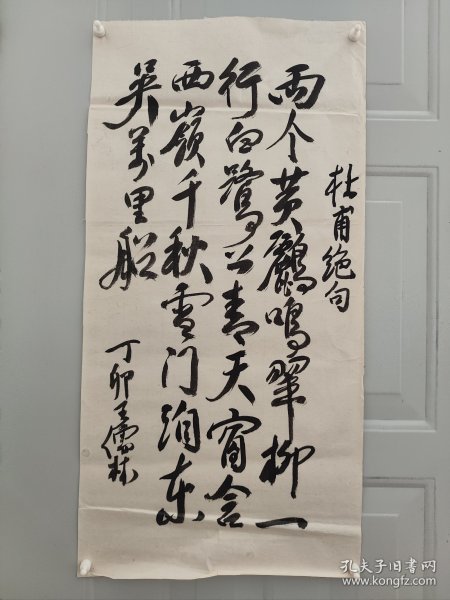 杜甫绝句
两个黄鸝鸣翠柳一
行白鹭上青天窗含
西嶺千秋雪门泊东
吴万里船
丁卯王儒林
孔夫子旧书网
www.kongfz.com